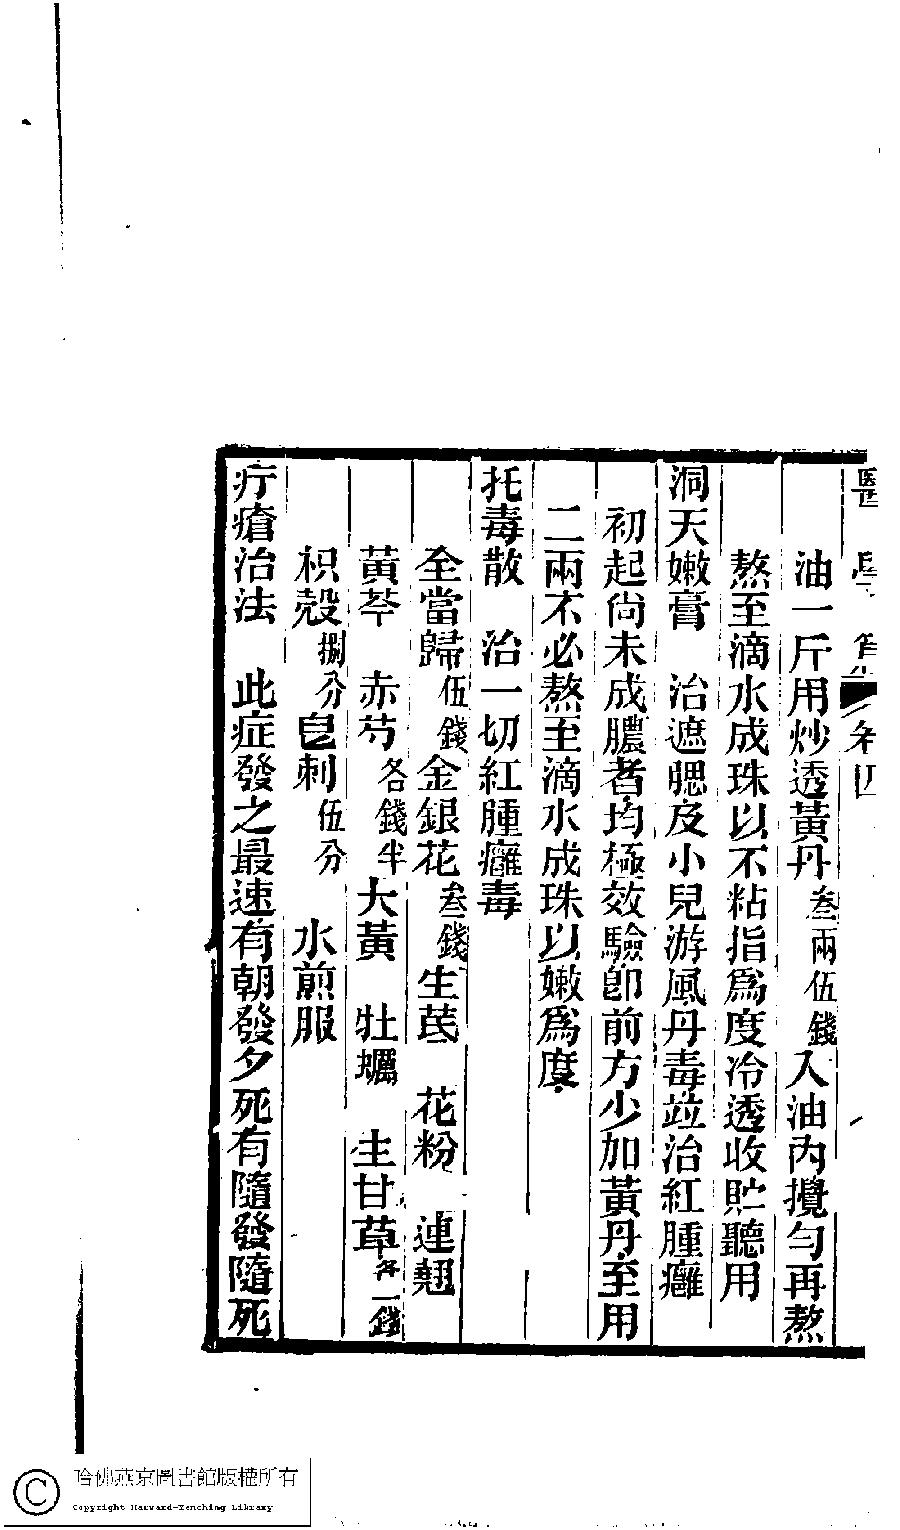 醫學 卷四
油一斤用炒透黃丹叁兩伍錢入油內攪勻再熬
熬至滴水成珠以不粘指為度冷透收貯聽用
洞天嫩膏 治遮腮及小兒游風丹毒竝治紅腫癰
初起尚未成膿者均極效驗卽前方少加黃丹至用
二兩不必熬至滴水成珠以嫩為度
托毒散 治一切紅腫癰毒
全當歸伍錢金銀花叁錢生芪 花粉 連翹
黃芩 赤芍各錢半大黃 牡蠣 生甘草各一錢
枳殼捌分皂刺伍分 水煎服
疔瘡治法 此症發之最速有朝發夕死有隨發隨死
哈佛燕京圖書館版權所有
Copyright Harvard-Yenching Library